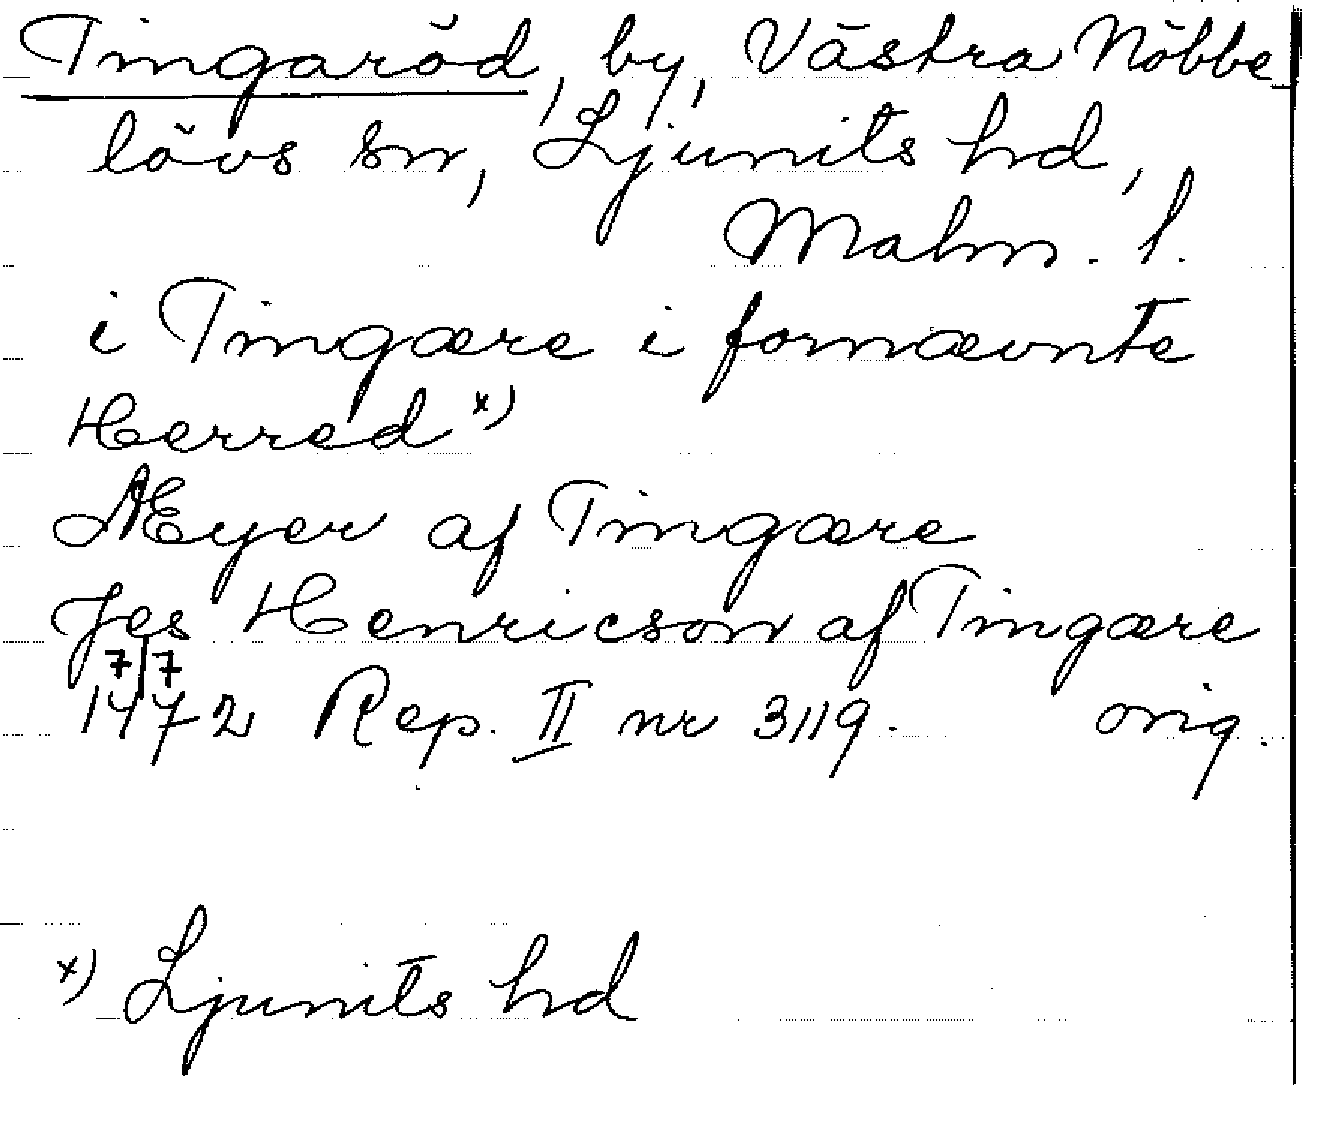 Tingaröd, by, Västra Nöbbe
lövs sn, Ljunits hd,
Malm. l.
i Tingære i fornævnte
Herred x)
Æyer af Tingære
Jes Henricson af Tingære
7/7
1472 Rep. II nr 3119. orig.
x) Ljunits hd